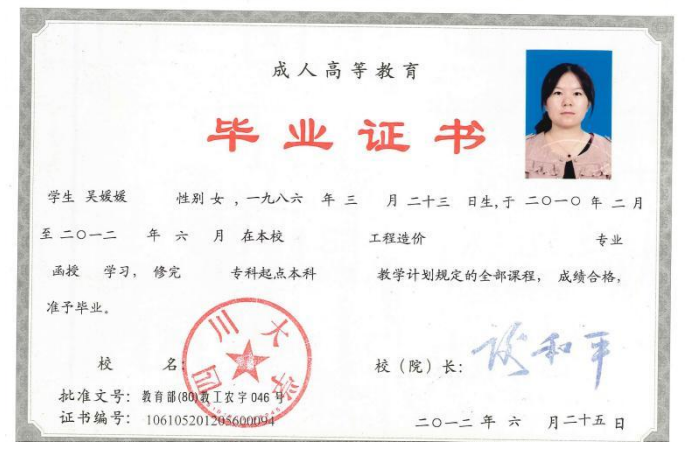 成人高等教育
毕业证书
学生 吴媛媛 性别 女 ,一九八六 年 三 月 二十三 日生,于 二〇一〇 年 二 月
至 二〇一二 年 六 月 在本校 工程造价 专业
函授 学习, 修完 专科起点本科 教学计划规定的全部课程, 成绩合格,
准予毕业。
四川大学
校 名: 校(院)长: 谢和平
批准文号: 教育部(80)教工农字 046 号
证书编号: 106105201205600094 二〇一二 年 六 月二十五 日